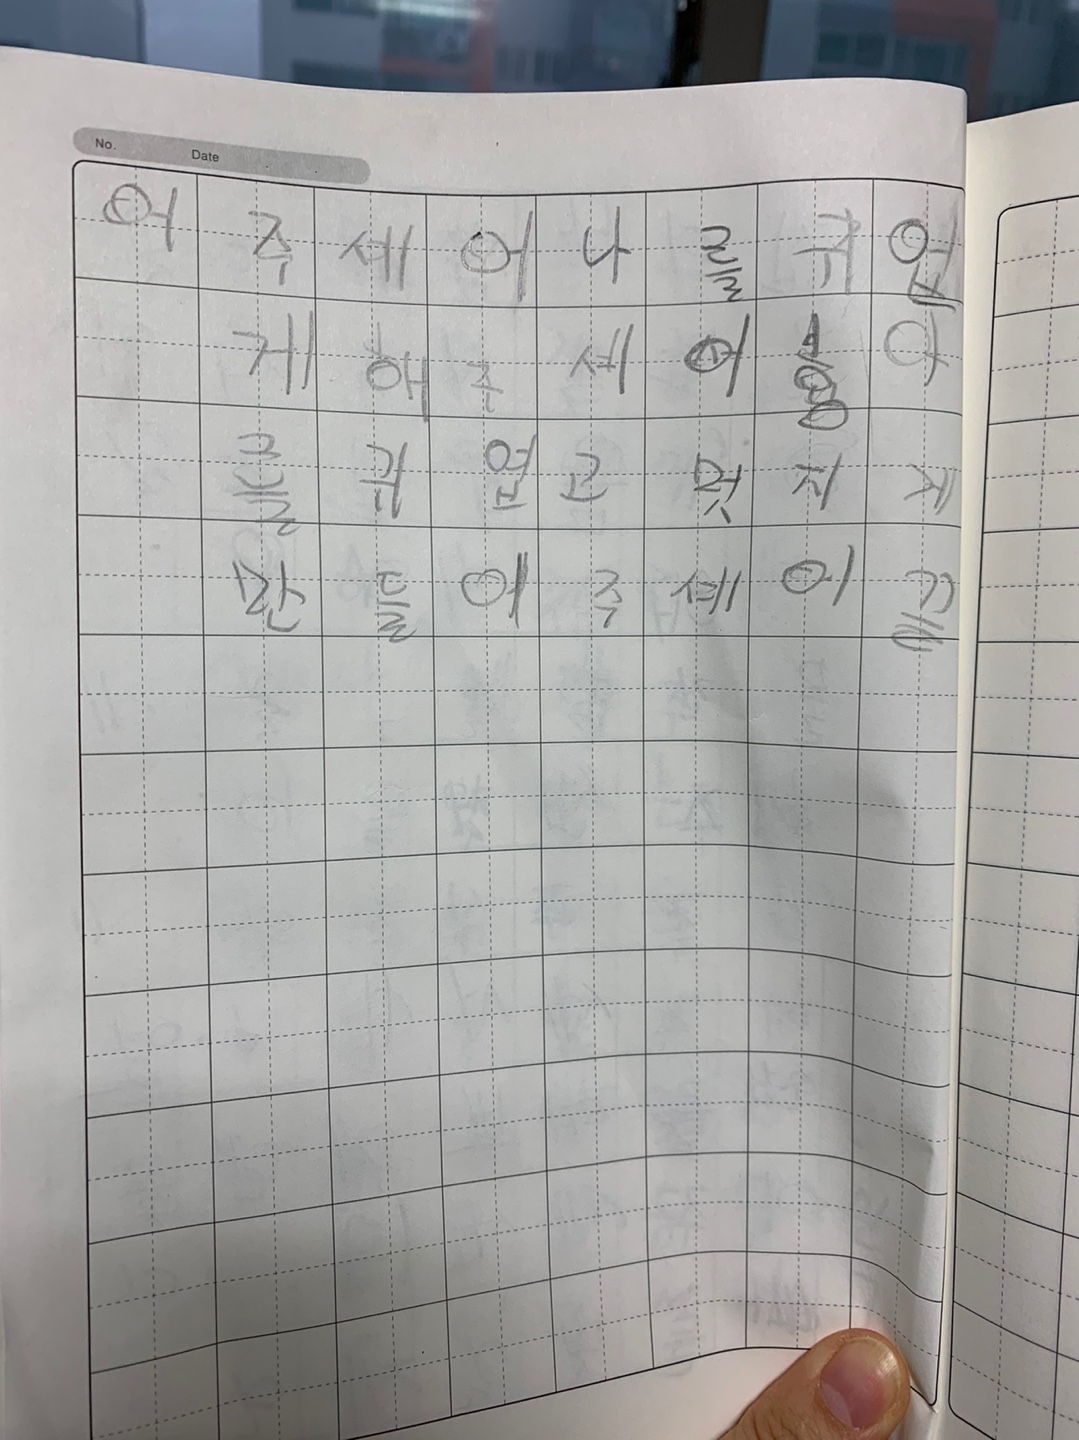 No. Date
어 주 세 어 나 를
게 해 주 세 어
를 귀 엽 고 멋 지 게
만 들 어 주 세 어